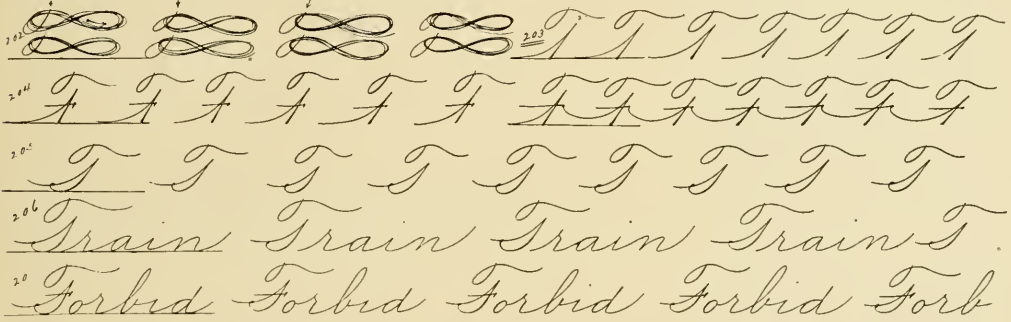 202 203 T T T T T T T
204 F F F F F F F F F F F F F
205 T T T T T T T T T
206 Train Train Train Train T
20 Forbid Forbid Forbid Forbid Forb